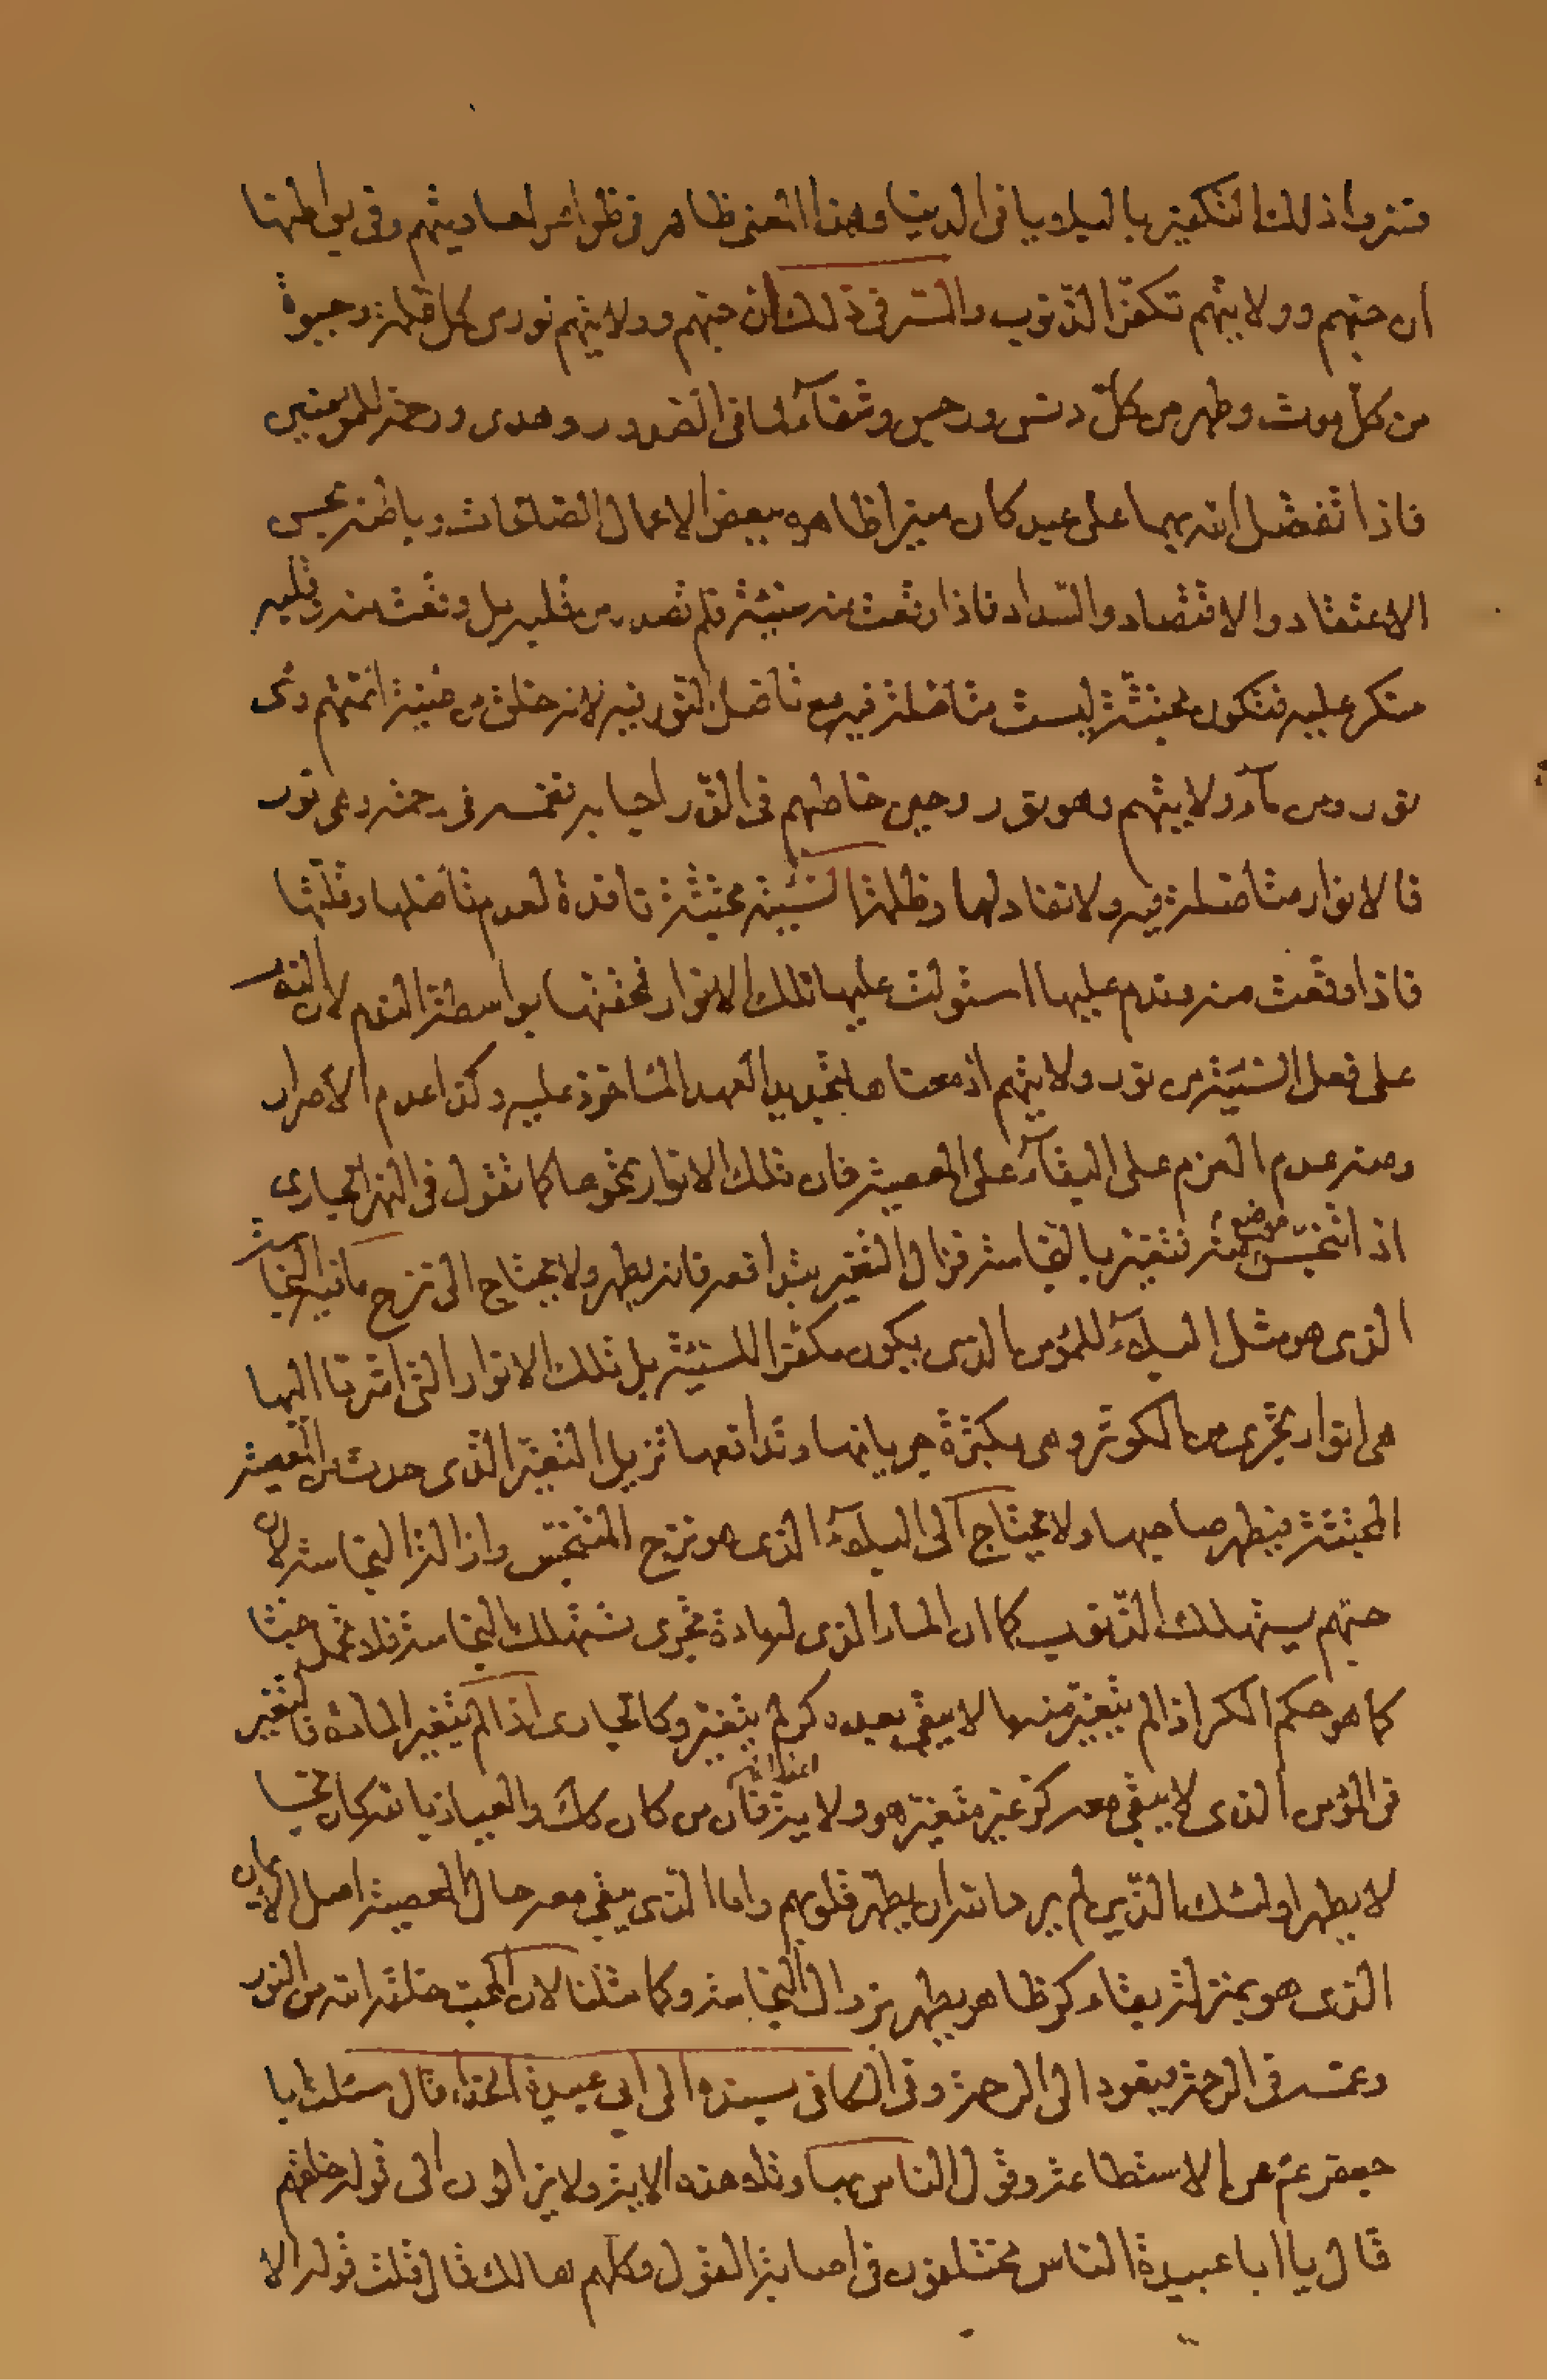 فتنزه اذ لك التكفير بالبلايا فى الدنيا وهذا المعنى ظاهر فى ظواهر احاديثهم وفى بواطنها
ان حبهم وولايتهم تكفر الذنوب والسر فى ذلك ان حبهم وولايتهم نور من كل ظلمة وحيوة
من كل موت وطهر من كل دنس ورجس وشفاء لما فى الصدور وهدى ورحمة للمؤمنين
فاذا تفضل الله بهما على عبد كان ظاهره ببعض الاعمال الصالحات وباطنه بحسن
الاعتقاد والاقتصاد والسداد فاذا وقعت منه سيئة فلم تصدر من قلبه بل وقعت منه وقلبه
منكر عليه فتكون مجتثة ليست متأصلة فيه مع تأصل النور فيه لانه خلق من طينة ائمتهم وهى
نور ومن ماء ولايتهم وهو نور وحين خاطبهم فى الذر اجابه نغمسه فى رحمته وهى نور
فالانوار متأصلة فيه ولا نفاد لها وظلمة السيئة مجتثة نافدة لعدم تأصلها وقلتها
فاذا وقعت منه وندم عليها استولت عليها تلك الانوار فمحقتها بواسطة الندم لان الندم
على فعل السيئة من نور ولايتهم اذ معناها تجديد العهد المأخوذ عليه وكذا عدم الاصرار
ومنه عدم العزم على البقاء على المعصية فان تلك الانوار تمحوها كما نقول فى النهر الجارى
اذا تنجس موضع منه تغير بالنجاسة فزال التغير بتدافعه فانه يطهر ولا يحتاج الى نزح ما فيه النجاسة
الذى هو مثل البلاء للمؤمن الذى يكون مكفرا للسيئة بل تلك الانوار التى اشرنا اليها
هى انوار تجرى من الكوثر وهى بكثرة جريانها وتدافعها تزيل التغير الذى حدث من المعصية
المجتثة فيطهر صاحبها ولا يحتاج الى البلاء الذى هو نزح المتنجس وازالة النجاسة لان
حبهم يستهلك الذنوب كما ان الماء الذى له مادة تجرى تستهلك النجاسة فلا تحمل خبثا
كما هو حكم الكر اذا لم يتغير منها لا يبقى بعده كر لم يتغير وكالجارى اذا لم يتغير المادة فالتغير
فى المؤمن الذى لا يبقى معه كر غير متغير هو ولاية اعداء الله فان من كان كك والعياذ بالله كان نجسا
لا يطهر اولئك الذين لم يرد الله ان يطهر قلوبهم واما الذى يبقى معه حال المعصية اصل الايمان
الذى هو بمنزلة بقاء كر طاهر يطهر بزوال النجاسة وكما مثلنا لان المحب خلقه الله من النور
وغمسه فى الرحمة فيعود الى الرحمة وفى الكافى بسنده الى ابى عبيدة الحذاء قال سئلت ابا
جعفر عم عن الاستطاعة وقول الناس فيها وتلا هذه الاية ولا يزالون الى قوله خلقهم
قال يا ابا عبيدة الناس مختلفون فى اصابة القول وكلهم هالك قال قلت قوله الا